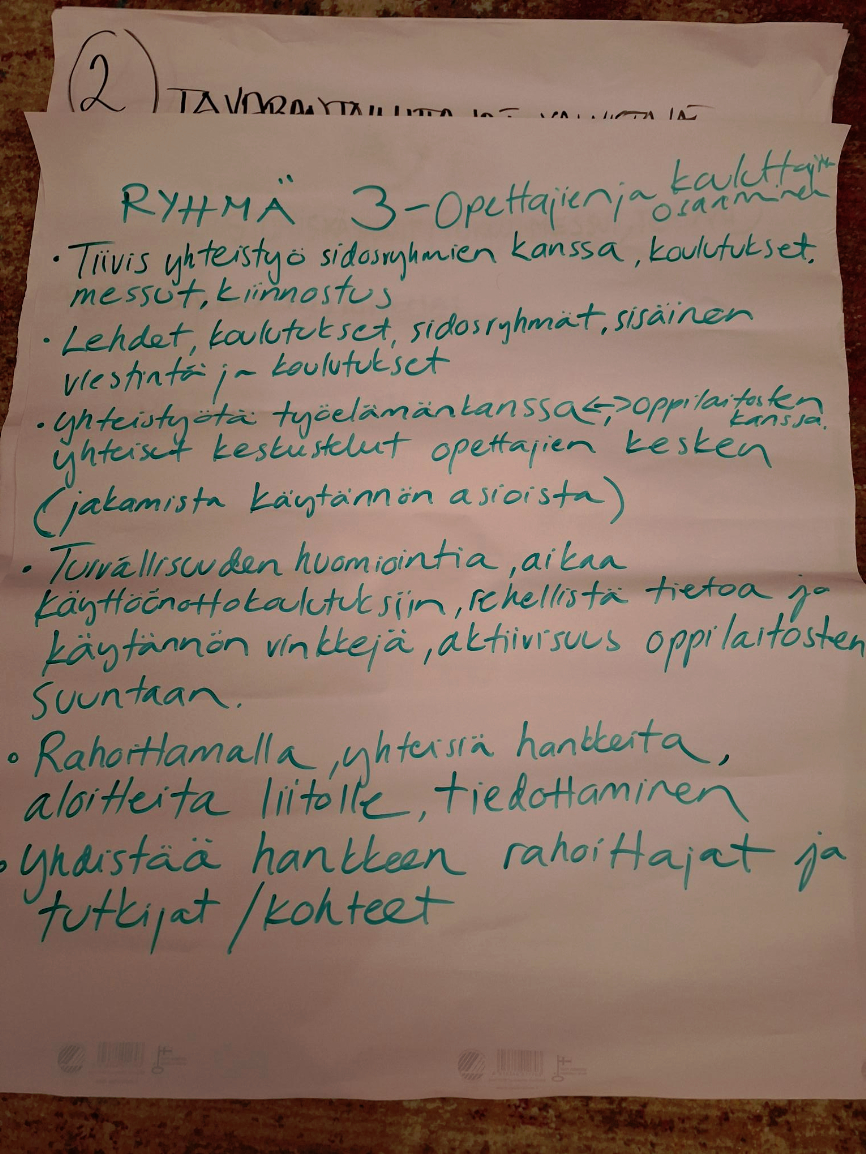 2
RYHMÄ 3 - Opettajien ja kouluttajien
osaaminen
• Tiivis yhteistyö sidosryhmien kanssa, koulutukset,
messut, kiinnostus
• Lehdet, koulutukset, sidosryhmät, sisäinen
viestintä ja koulutukset
• yhteistyötä työelämänkanssa <-> oppilaitosten
kanssa.
yhteiset keskustelut opettajien kesken
(jakamista käytännön asioista)
• Turvallisuuden huomiointia, aikaa
käyttöönottokoulutuksiin, rehellistä tietoa ja
käytännön vinkkejä, aktiivisuus oppilaitosten
suuntaan.
• Rahoittamalla, yhteisiä hankkeita,
aloitteita liitolle, tiedottaminen
• yhdistää hankkeen rahoittajat ja
tutkijat / kohteet